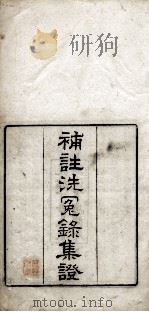 研狗
補註洗冤錄集證
mtoou.info